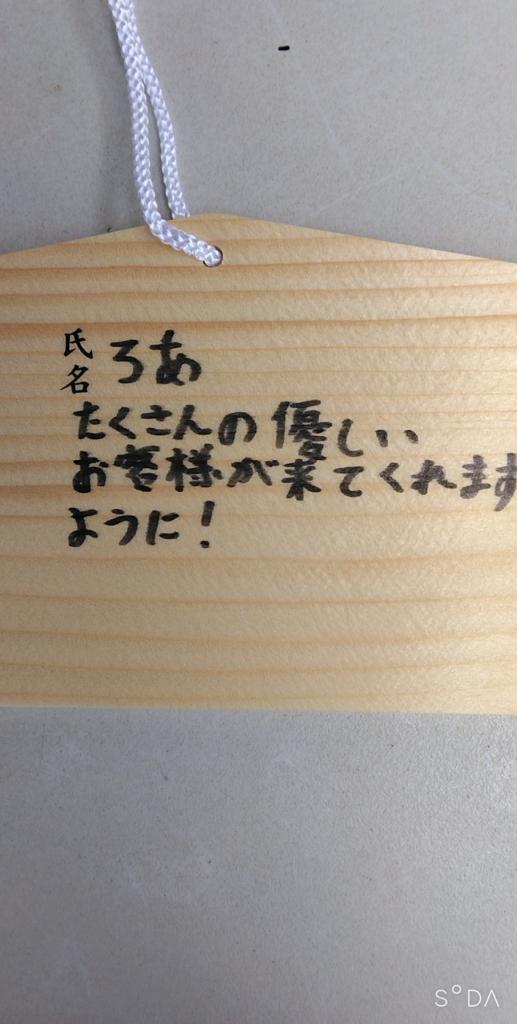 氏名 ろあ
たくさんの優しい
お客様が来てくれます
ように！
S°DA